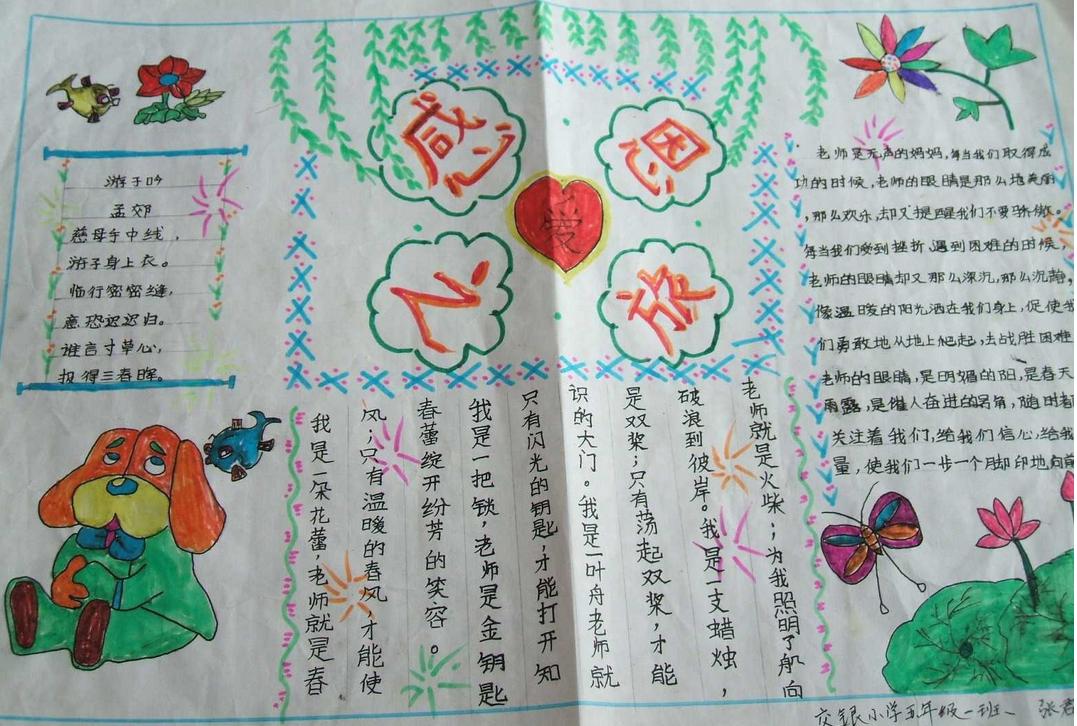 感恩
爱
之旅
游子吟
孟郊
慈母手中线，
游子身上衣。
临行密密缝，
意恐迟迟归。
谁言寸草心，
报得三春晖。
老师是无声的妈妈，每当我们取得成
功的时候，老师的眼睛是那么地美丽
，那么欢乐，却又提醒我们不要骄傲。
每当我们受到挫折，遇到困难的时候，
老师的眼睛却又那么深沉，那么沉静，
像温暖的阳光洒在我们身上，促使我
们勇敢地从地上爬起，去战胜困难
老师的眼睛，是明媚的阳，是春天
雨露，是催人奋进的号角，随时都
关注着我们，给我们信心，给我
量，使我们一步一个脚印地向前
我是一朵花蕾，老师就是春
风；只有温暖的春风，才能使
春蕾绽开纷芳的笑容。
我是一把锁，老师是金钥匙
只有闪光的钥匙，才能打开知
识的大门。我是一叶舟老师就
是双桨；只有荡起双桨，才能
破浪到彼岸。我是一支蜡烛，
老师就是火柴；为我照明了航向
交银小学五年级一班、 张